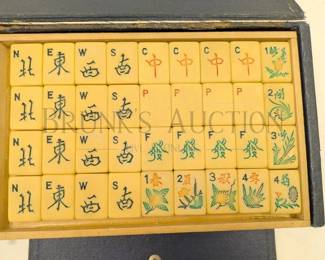 N E W S C C C C 1
北 東 西 南 中 中 中 中
N E W S P P P P 2
北 東 西 南
BRUNK'S AUCTION
N E W S F F F F 3
北 東 西 南 發 發 發 發
N E W S 1 2 3 4 4
北 東 西 南